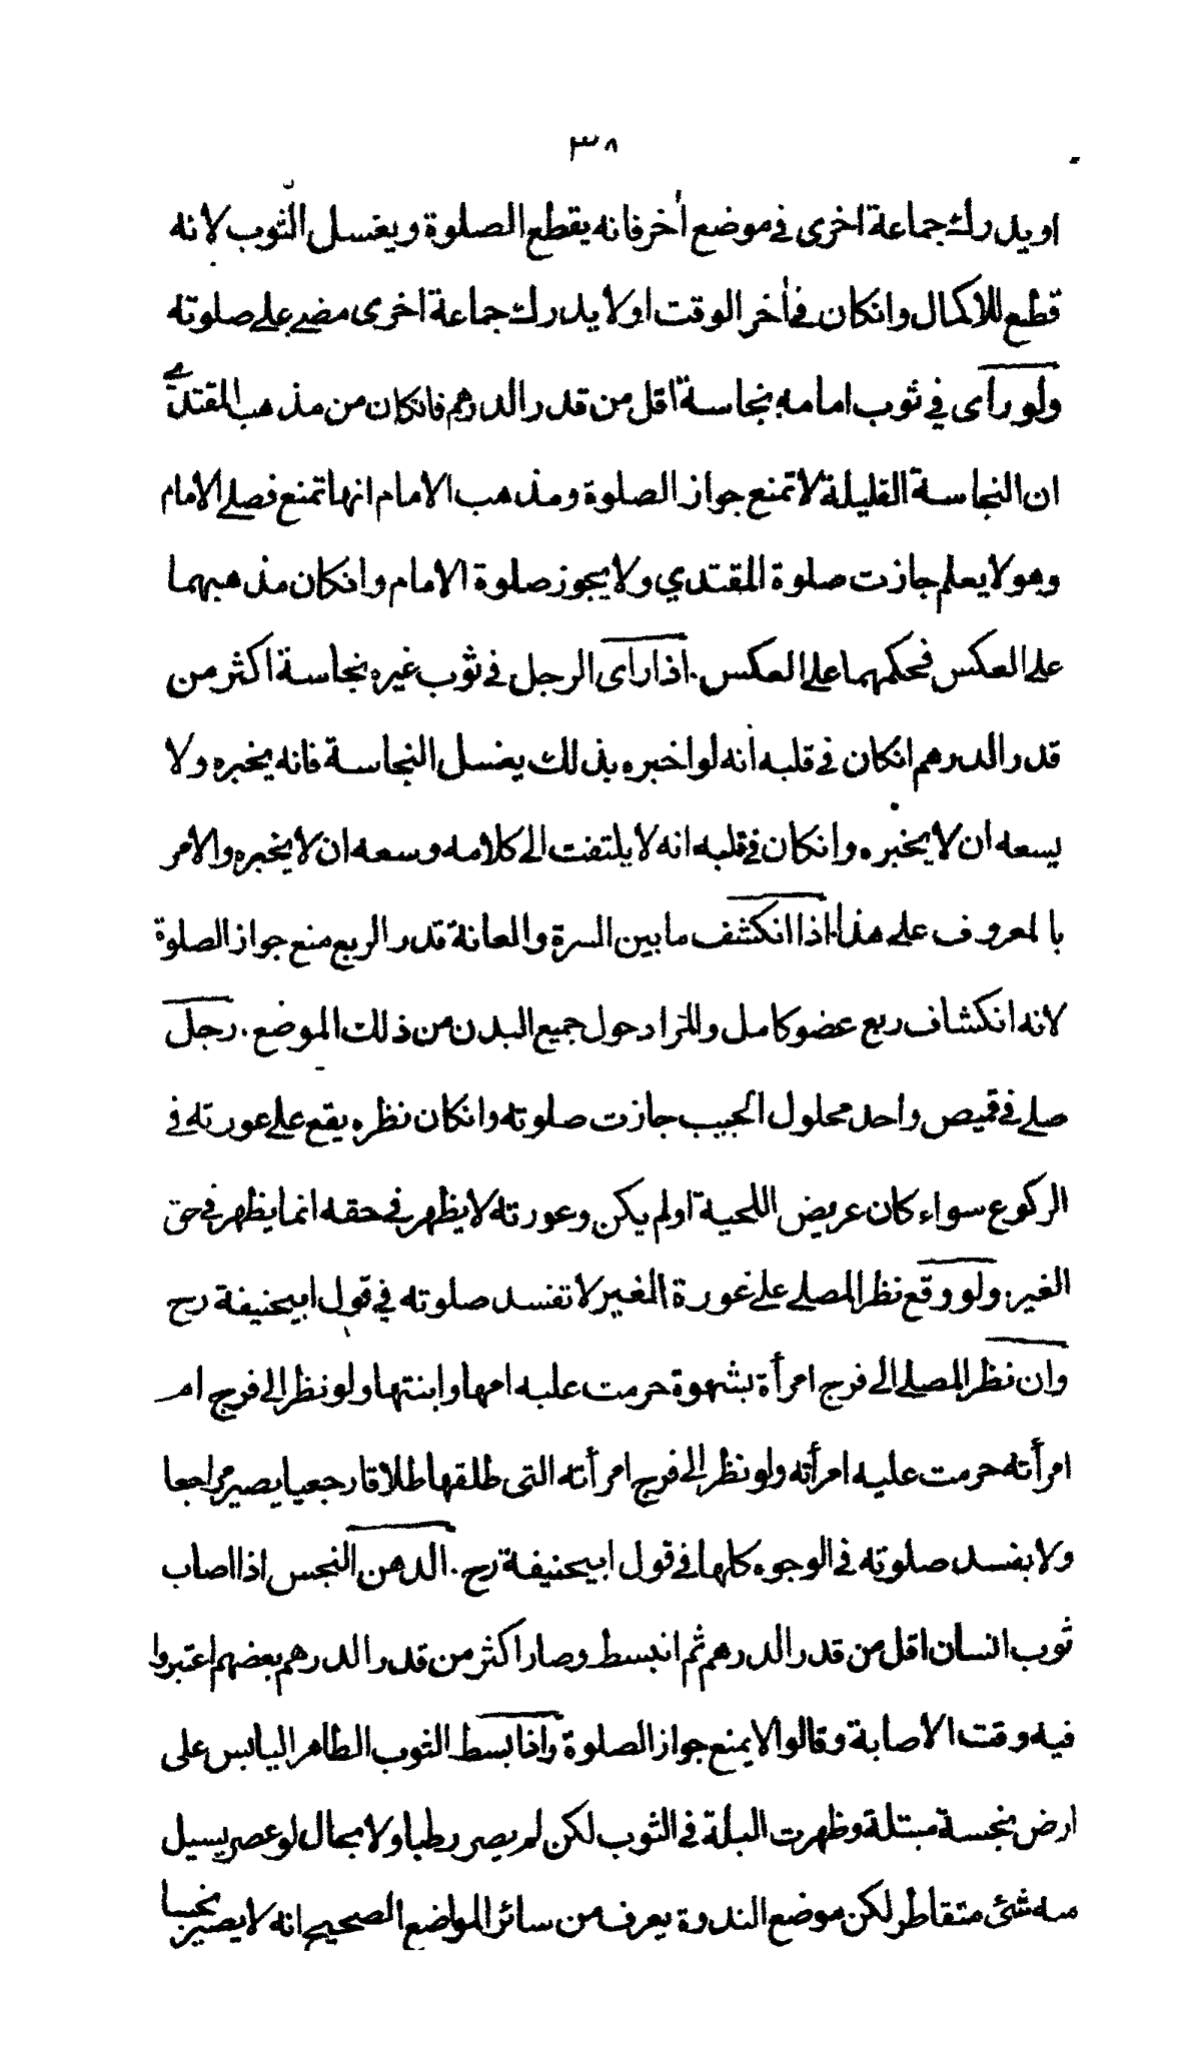 ٣٨
او يدرك جماعة اخرى في موضع أخر فانه يقطع الصلوة ويغسل الثوب لانه
قطع للاكمال وانكان في أخر الوقت او لا يدرك جماعة اخرى مضى على صلوته
ولو رأى في ثوب امامه نجاسة اقل من قدر الدرهم فانكان من مذهب المقتدي
ان النجاسة القليلة لا تمنع جواز الصلوة ومذهب الامام انها تمنع فصلى الامام
وهو لا يعلم جازت صلوة المقتدي ولا يجوز صلوة الامام وانكان مذهبهما
على العكس فحكمهما على العكس. اذا راى الرجل في ثوب غيره نجاسة اكثر من
قدر الدرهم انكان في قلبه أنه لو اخبره بذلك يغسل النجاسة فانه يخبره ولا
يسعه ان لا يخبره وانكان في قلبه انه لا يلتفت الى كلامه وسعه ان لا يخبره والامر
بالمعروف على هذا. اذا انكشف ما بين السرة والعانة قدر الربع منع جواز الصلوة
لانه انكشاف ربع عضو كامل والمراد حول جميع البدن من ذلك الموضع. رجل
صلى في قميص واحد محلول الجيب جازت صلوته وانكان نظره يقع على عورته في
الركوع سواء كان عريض اللحية اولم يكن وعورته لا يظهر في حقه انما يظهر في حق
الغير ولو وقع نظر المصلى على عورة الغير لا تفسد صلوته في قول ابيحنيفة رح
وان نظر المصلى الى فرج امرأة بشهوة حرمت عليه امها وابنتها ولو نظر الى فرج ام
امرأته حرمت عليه امرأته ولو نظر الى فرج امرأته التى طلقها طلاقا رجعيا يصير مراجعا
ولا يفسد صلوته في الوجوه كلها في قول ابيحنيفة رح. الدهن النجس اذا اصاب
ثوب انسان اقل من قدر الدرهم ثم انبسط وصار اكثر من قدر الدرهم بعضهم اعتبروا
فيه وقت الاصابة وقالوا لا يمنع جواز الصلوة واذا بسط الثوب الطاهر اليابس على
ارض نجسة مبتلة وظهرت البلة في الثوب لكن لم يصر رطبا ولا بحال لو عصر يسيل
منه شئ متقاطر لكن موضع الندوة يعرف من سائر المواضع الصحيح انه لا يصير نجسا